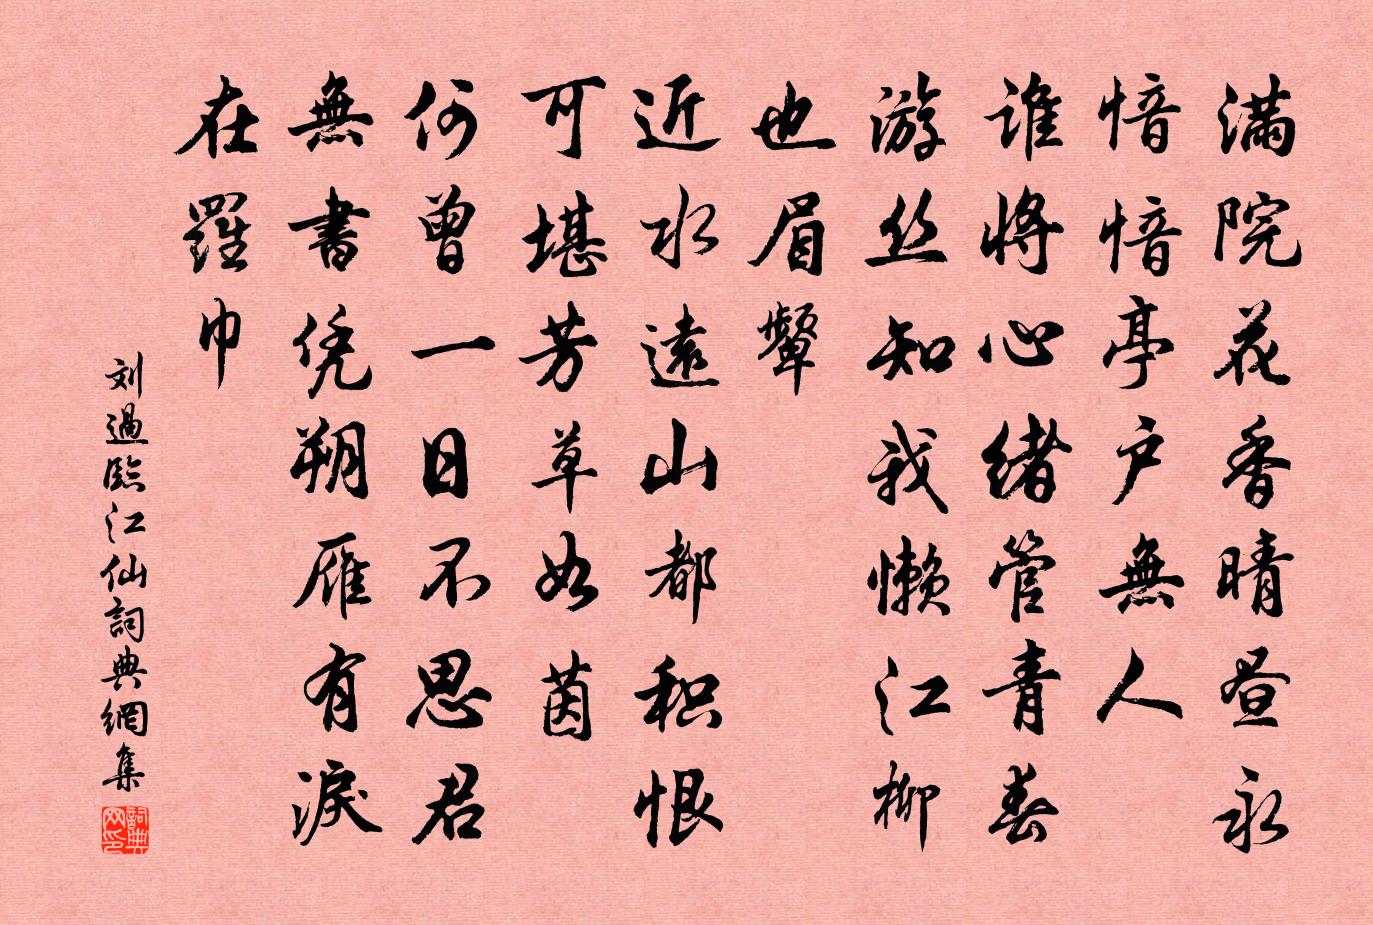 满院花香晴昼永
愔愔亭户無人
谁将心绪管青春
游丝知我懒江柳
也眉颦
近水遠山都积恨
可堪芳草如茵
何曾一日不思君
無書凭朔雁有淚
在羅巾
刘過臨江仙詞典網集
詞典
网印